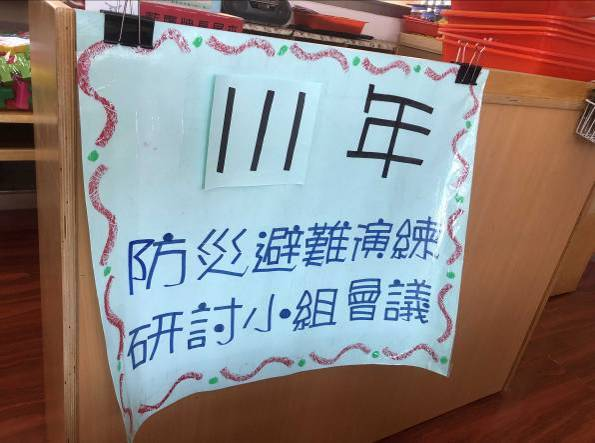 111年
防災避難演練
研討小組會議